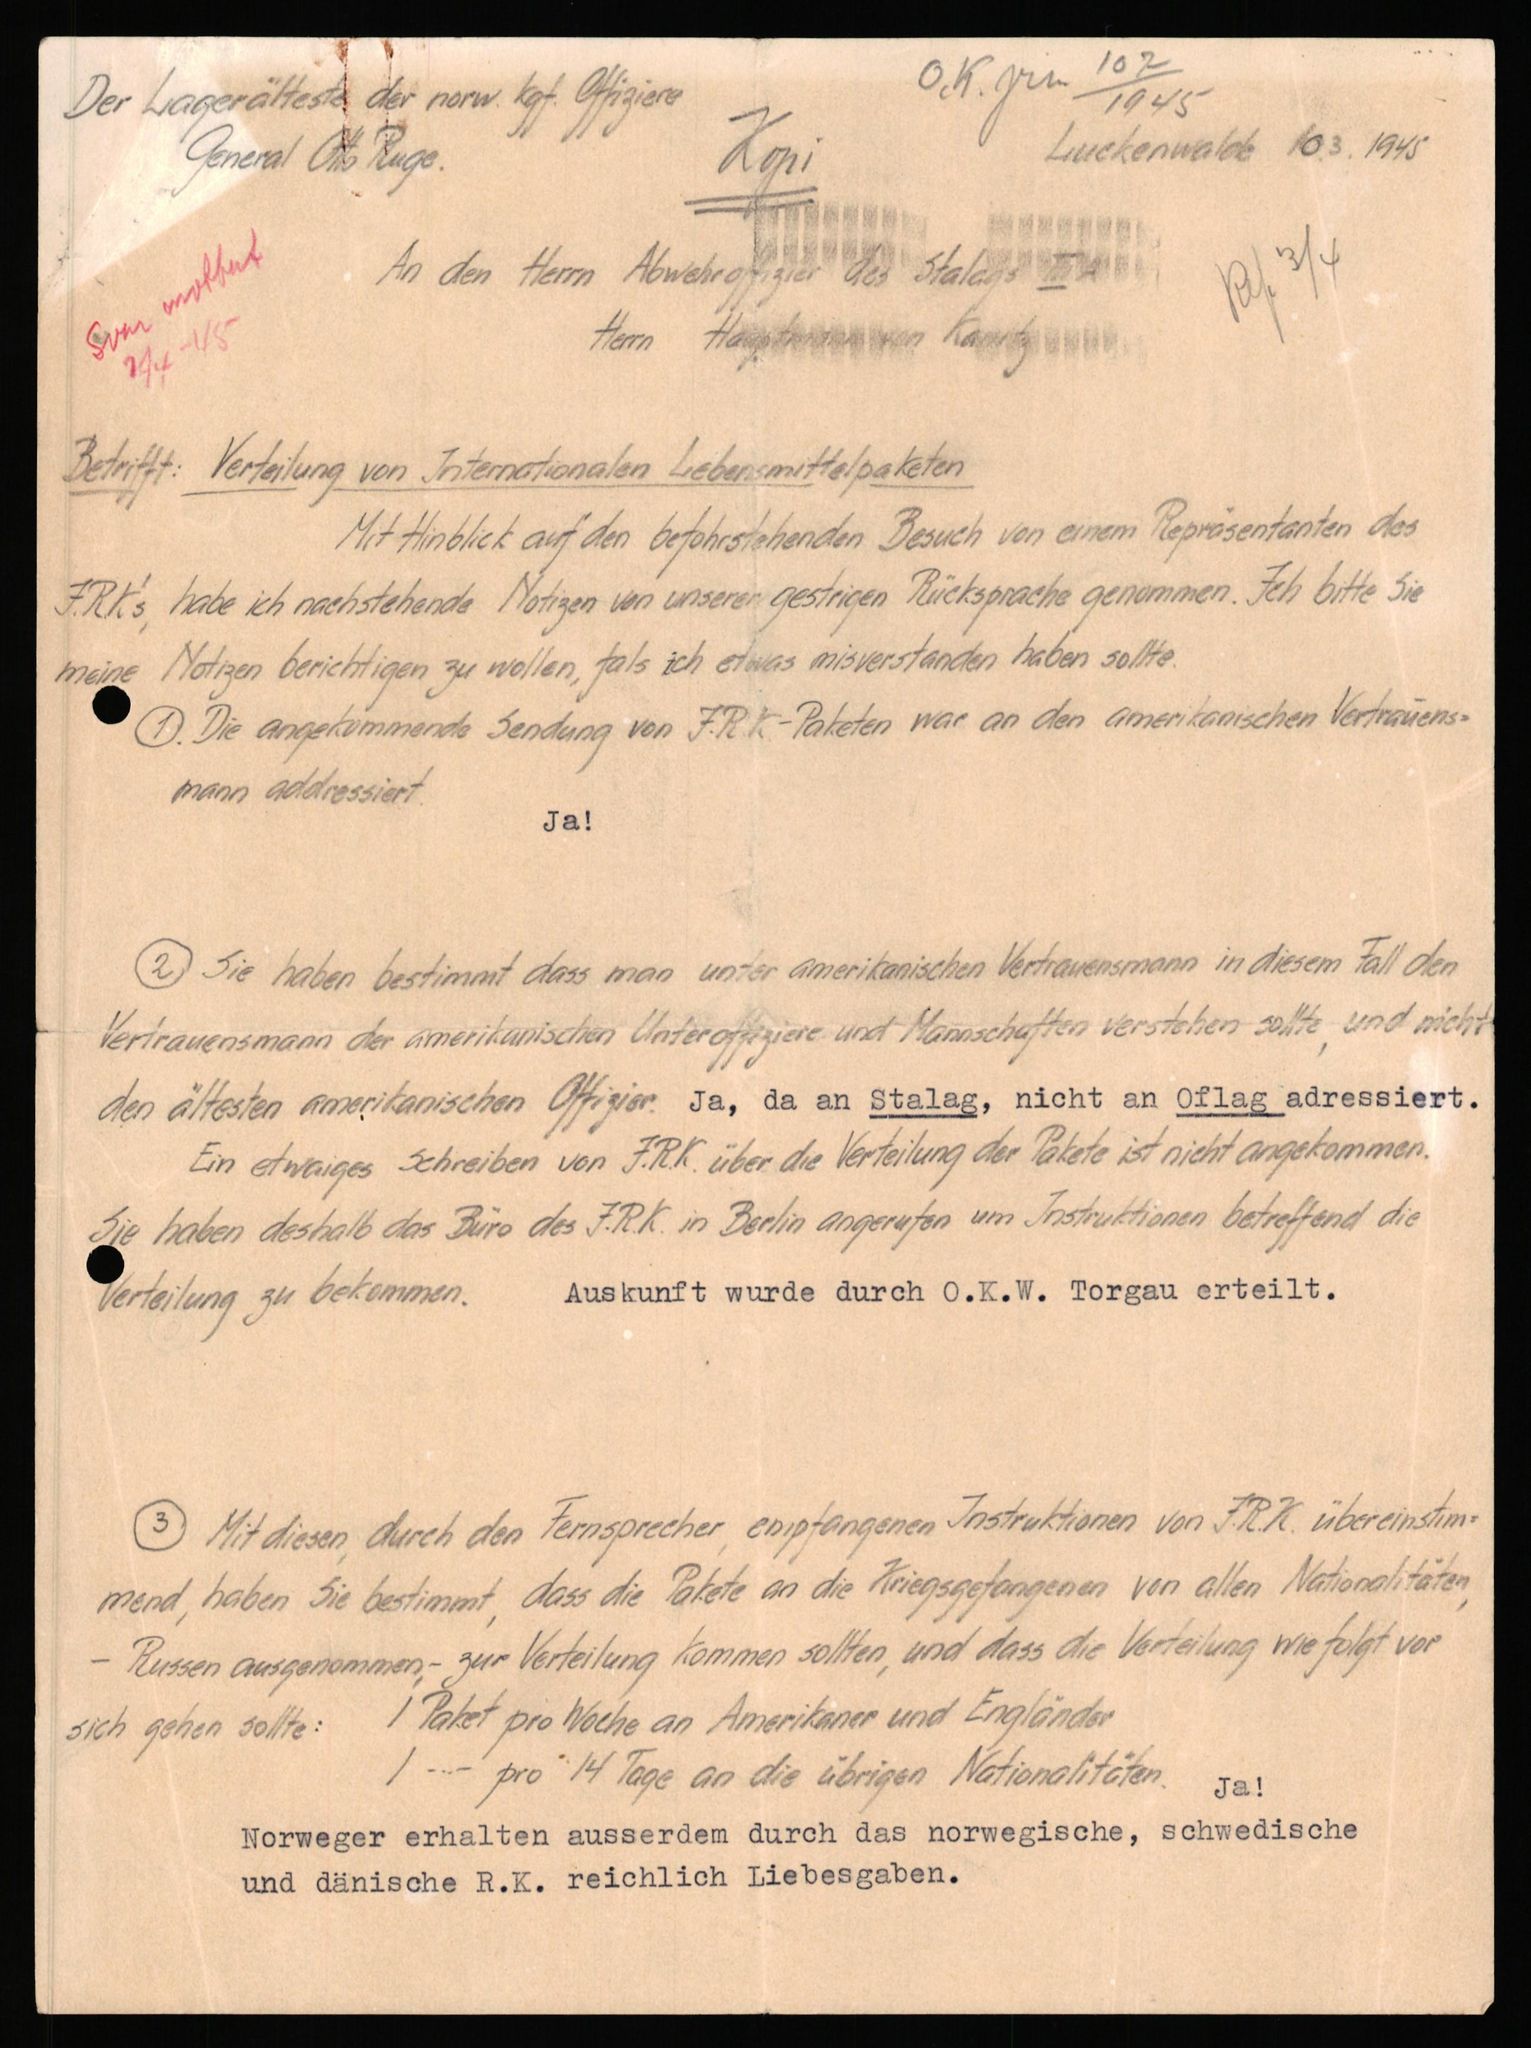 Der Lagerälteste der norw. kgf. Offiziere
General Otto Ruge.
O.K. jrn 102/1945
Kopi
Luckenwalde 10.3. 1945
An den Herrn Abwehroffizier des Stalags III A
Herrn Hauptmann von Kanitz
Svar mottatt
3/4
Betrifft: Verteilung von Internationalen Lebensmittelpaketen
Mit Hinblick auf den beforstehenden Besuch von einem Repräsentanten des
I.R.K's, habe ich nachstehende Notizen von unserer gestrigen Rücksprache genommen. Ich bitte Sie
meine Notizen berichtigen zu wollen, fals ich etwas misverstanden haben sollte.
1. Die angekommende Sendung von I.R.K-Paketen war an den amerikanischen Vertrauens=
mann addressiert.
Ja!
2 Sie haben bestimmt dass man unter amerikanischen Vertrauensmann in diesem Fall den
Vertrauensmann der amerikanischen Unteroffiziere und Mannschaften verstehen sollte, und nicht
den ältesten amerikanischen Offizier. Ja, da an Stalag, nicht an Oflag adressiert.
Ein etwaiges Schreiben von I.R.K. über die Verteilung der Pakete ist nicht angekommen.
Sie haben deshalb das Büro des I.R.K. in Berlin angerufen um Instruktionen betreffend die
Verteilung zu bekommen. Auskunft wurde durch O.K.W. Torgau erteilt.
3 Mit diesen, durch den Fernsprecher, empfangenen Instruktionen von I.R.K. übereinstim=
mend, haben Sie bestimmt, dass die Pakete an die Kriegsgefangenen von allen Nationalitäten,
– Russen ausgenommen,– zur Verteilung kommen sollten, und dass die Verteilung wie folgt vor
sich gehen sollte: 1 Paket pro Woche an Amerikaner und Engländer
1 -"- pro 14 Tage an die übrigen Nationalitäten. Ja!
Norweger erhalten ausserdem durch das norwegische, schwedische
und dänische R.K. reichlich Liebesgaben.